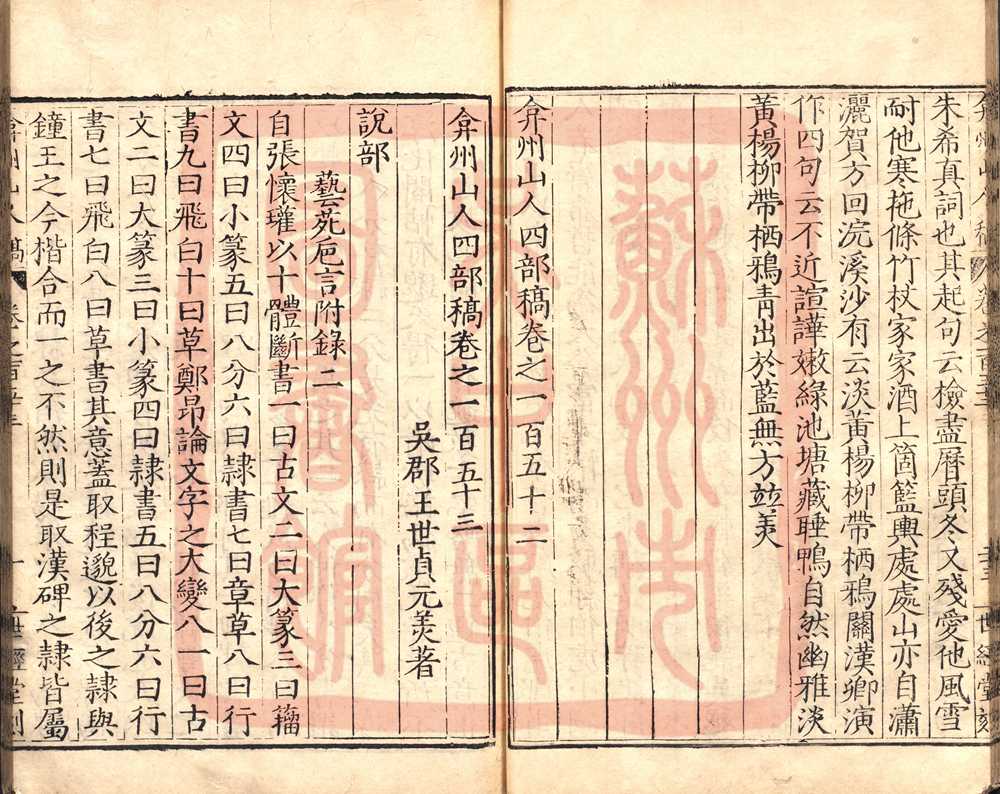 朱希真詞也其起句云檢盡曆頭冬又殘愛他風雪
耐他寒拖條竹杖家家酒上箇籃輿處處山亦自瀟
灑賀方回浣溪沙有云淡黃楊柳帶栖鴉關漢卿演
作四句云不近諠譁嫩綠池塘藏睡鴨自然幽雅淡
黃楊柳帶栖鴉青出於藍無方並美
弇州山人四部稿卷之一百五十二
弇州山人四部稿卷之一百五十三
吳郡王世貞元美著
說部
藝苑卮言附錄二
自張懷瓘以十體斷書一曰古文二曰大篆三曰籀
文四曰小篆五曰八分六曰隸書七曰章草八曰行
書九曰飛白十曰草鄭昂論文字之大變八一曰古
文二曰大篆三曰小篆四曰隸書五曰八分六曰行
書七曰飛白八曰草書其意蓋取程邈以後之隸與
鐘王之今楷合而一之不然則是取漢碑之隸皆屬